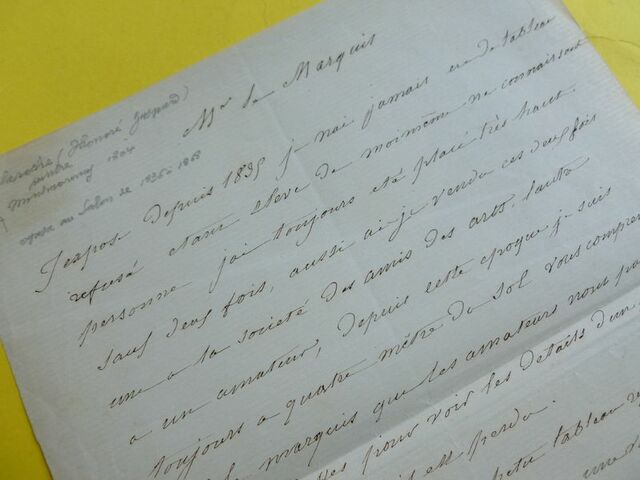 (Honoré Gaspard)
peintre
Montmorency 1804
expose au Salon de 1835 à 1868
Mr le Marquis
J'expose Depuis 1835 je n'ai jamais eu de tableau
refusé etant Elève de moimême ne connaissant
personne j'ai toujours eté placé très haut.
sauf deux fois, aussi ai je vendu ces deux fois
une a la société des amis des arts, l'autre
a un amateur, Depuis cette epoque je suis
toujours a quatre mètre du Sol vous compren
marquis que les amateurs nont pa
pour voir les details d'un
est perdu.
tableau